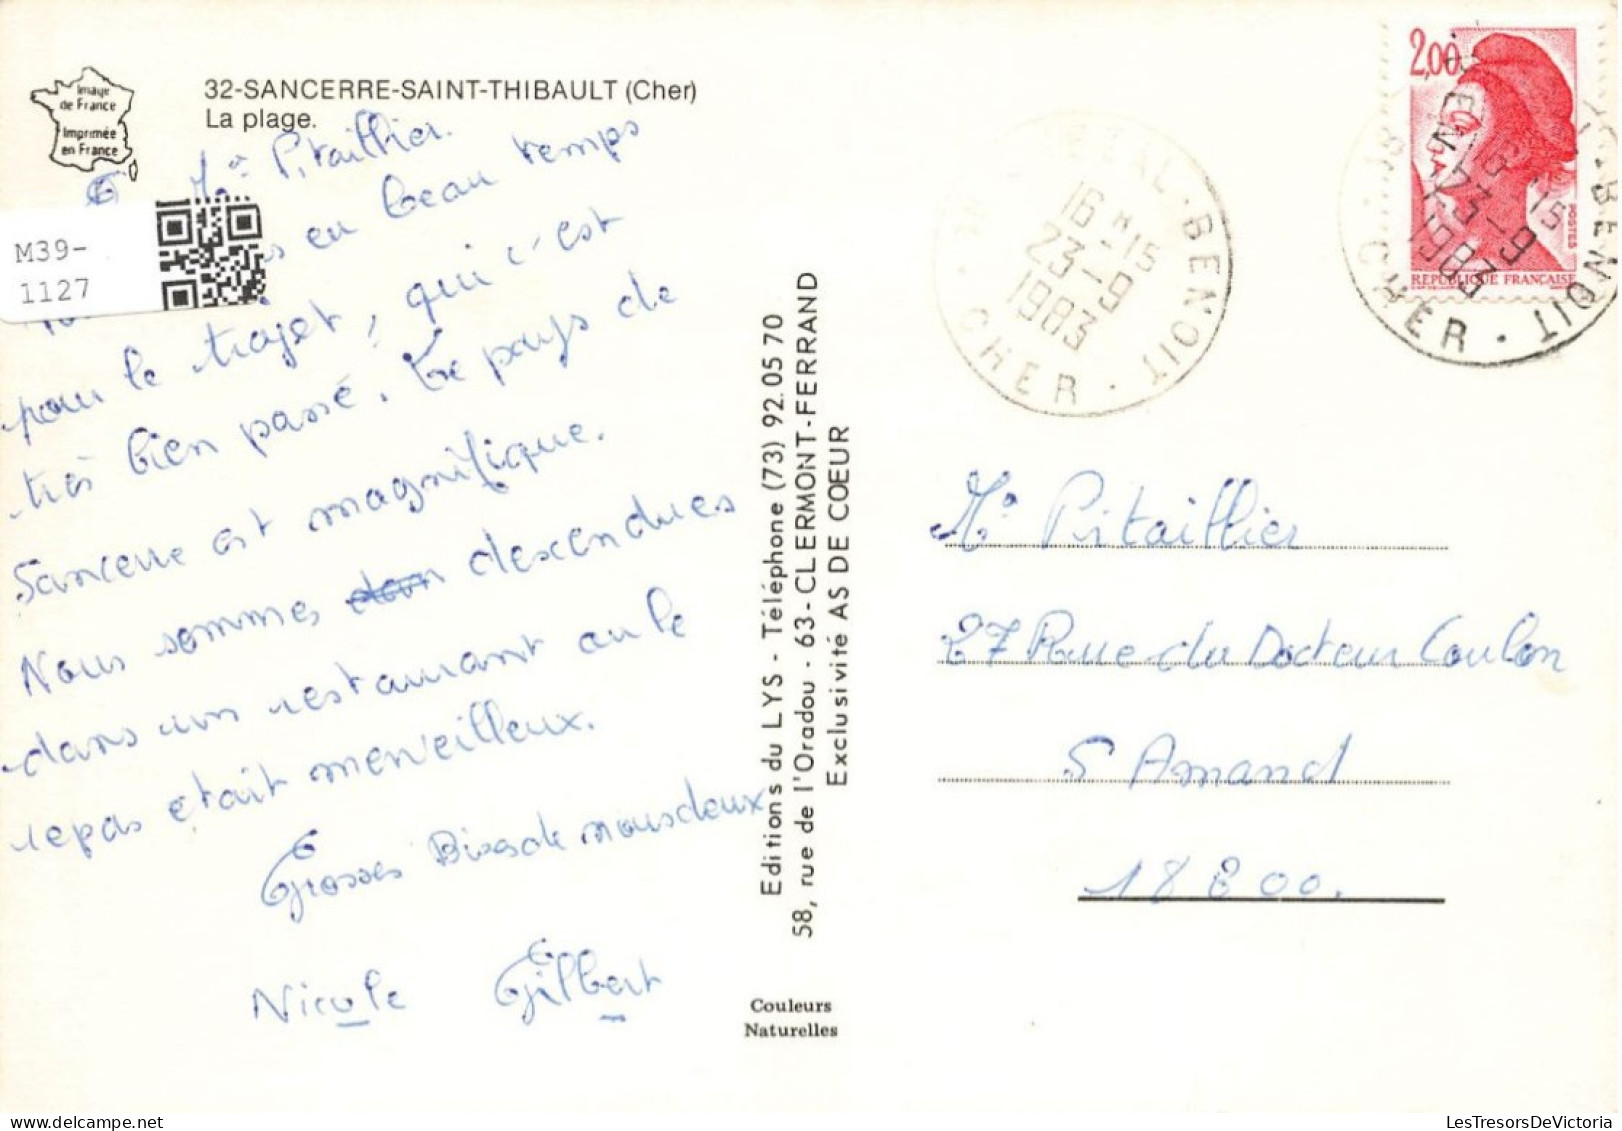 Image
de France
Imprimée
en France
32-SANCERRE-SAINT-THIBAULT (Cher)
La plage.
M39-
1127
Me Pitaillier.
en beau temps
pour le trajet, qui c'est
très bien passé. Le pays de
Sancerre est magnifique.
Nous sommes descendues
dans un restaurant ou le
repas etait merveilleux.
Grosses Bises de nous deux
Nicole Gilbert
Editions du LYS - Téléphone (73) 92.05 70
58, rue de l'Oradou - 63 - CLERMONT-FERRAND
Exclusivité AS DE CŒUR
Couleurs
Naturelles
BENOIT
16 H-15
23-9
1983
CHER
2,00
POSTES
REPUBLIQUE FRANÇAISE
BENOIT
16 15
23-9
1983
CHER
Me Pitaillier
27 Rue du Docteur Coulon
S Amand
18200.
LesTresorsDeVictoria